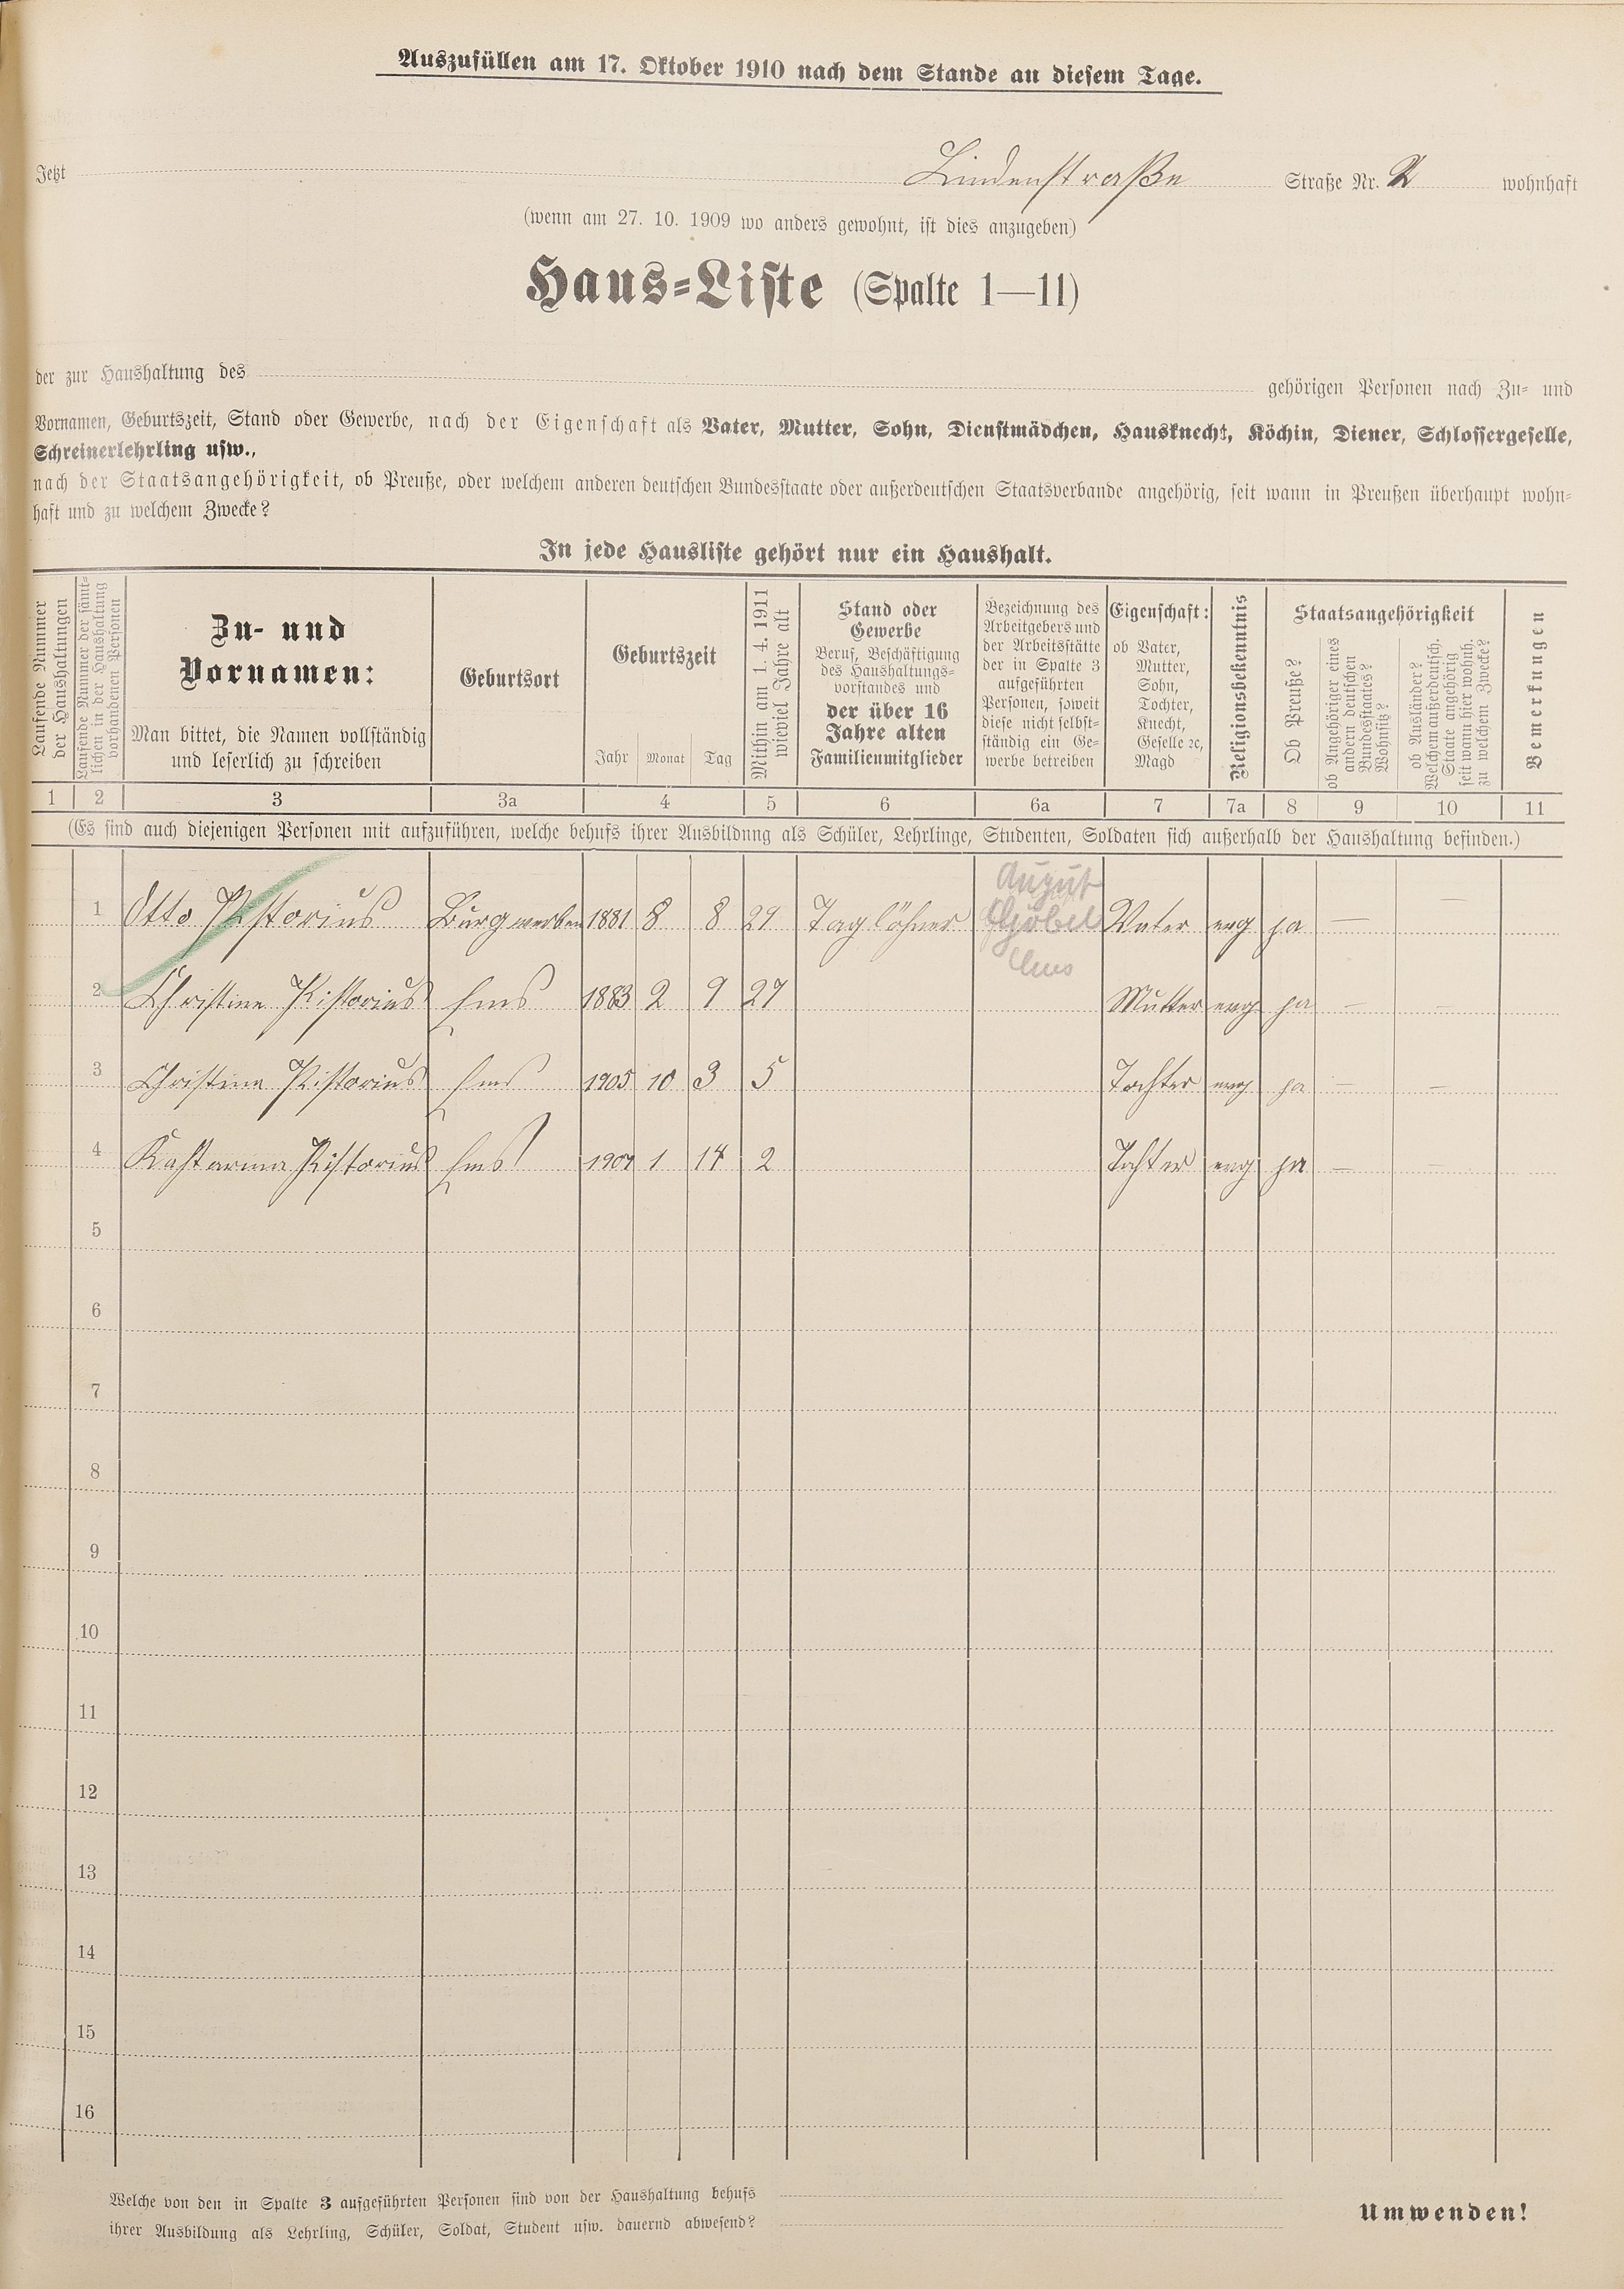 Auszufüllen am 17. Oktober 1910 nach dem Stande an diesem Tage.
Jetzt Lindenstraße Straße Nr. 2 wohnhaft
(wenn am 27. 10. 1909 wo anders gewohnt, ist dies anzugeben)
Haus-Liste (Spalte 1—11)
der zur Haushaltung des gehörigen Personen nach Zu- und
Vornamen, Geburtszeit, Stand oder Gewerbe, nach der Eigenschaft als Vater, Mutter, Sohn, Dienstmädchen, Hausknecht, Köchin, Diener, Schlossergeselle,
Schreinerlehrling usw.,
nach der Staatsangehörigkeit, ob Preuße, oder welchem anderen deutschen Bundesstaate oder außerdeutschen Staatsverbande angehörig, seit wann in Preußen überhaupt wohn-
haft und zu welchem Zwecke?
In jede Hausliste gehört nur ein Haushalt.
Laufende Nummer
der Haushaltungen
Laufende Nummer der sämt-
lichen in der Haushaltung
vorhandenen Personen
Zu- und
Vornamen:
Man bittet, die Namen vollständig
und leserlich zu schreiben
Geburtsort
Geburtszeit
Jahr Monat Tag
Mithin am 1. 4. 1911
wieviel Jahre alt
Stand oder
Gewerbe
Beruf, Beschäftigung
des Haushaltungs-
vorstandes und
der über 16
Jahre alten
Familienmitglieder
Bezeichnung des
Arbeitgebers und
der Arbeitsstätte
der in Spalte 3
aufgeführten
Personen, soweit
diese nicht selbst-
ständig ein Ge-
werbe betreiben
Eigenschaft:
ob Vater,
Mutter,
Sohn,
Tochter,
Knecht,
Geselle ꝛc,
Magd
Religionsbekenntnis
Staatsangehörigkeit
Ob Preuße?
ob Angehöriger eines
andern deutschen
Bundesstaates?
Wohnsitz?
ob Ausländer?
Welchem außerdeutsch.
Staate angehörig
seit wann hier wohnh.
zu welchem Zwecke?
Bemerkungen
1 2 3 3a 4 5 6 6a 7 7a 8 9 10 11
(Es sind auch diejenigen Personen mit aufzuführen, welche behufs ihrer Ausbildung als Schüler, Lehrlinge, Studenten, Soldaten sich außerhalb der Haushaltung befinden.)
1 Otto Pistorius Burgwerben 1881 8 8 29 Taglöhner August Göbel Ems Vater evg ja — —
2 Christine Pistorius Ems 1883 2 9 27 Mutter evg ja — —
3 Christina Pistorius Ems 1905 10 3 5 Tochter evg ja — —
4 Katharina Pistorius Ems 1909 1 14 2 Tochter evg ja — —
5
6
7
8
9
10
11
12
13
14
15
16
Welche von den in Spalte 3 aufgeführten Personen sind von der Haushaltung behufs
ihrer Ausbildung als Lehrling, Schüler, Soldat, Student usw. dauernd abwesend?
Umwenden!